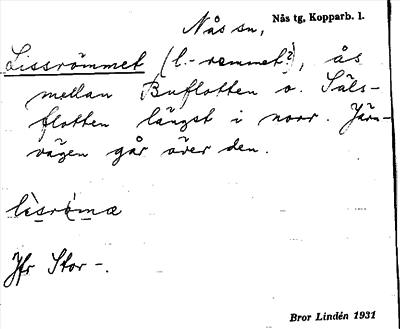 Nås sn, Nås tg, Kopparb. l.
Lissrömmet (l. -remmet?), ås
mellan Buflotten o. Säls-
flotten längst i norr. Järn-
vägen går över den.
Jfr Stor -.
Bror Lindén 1931